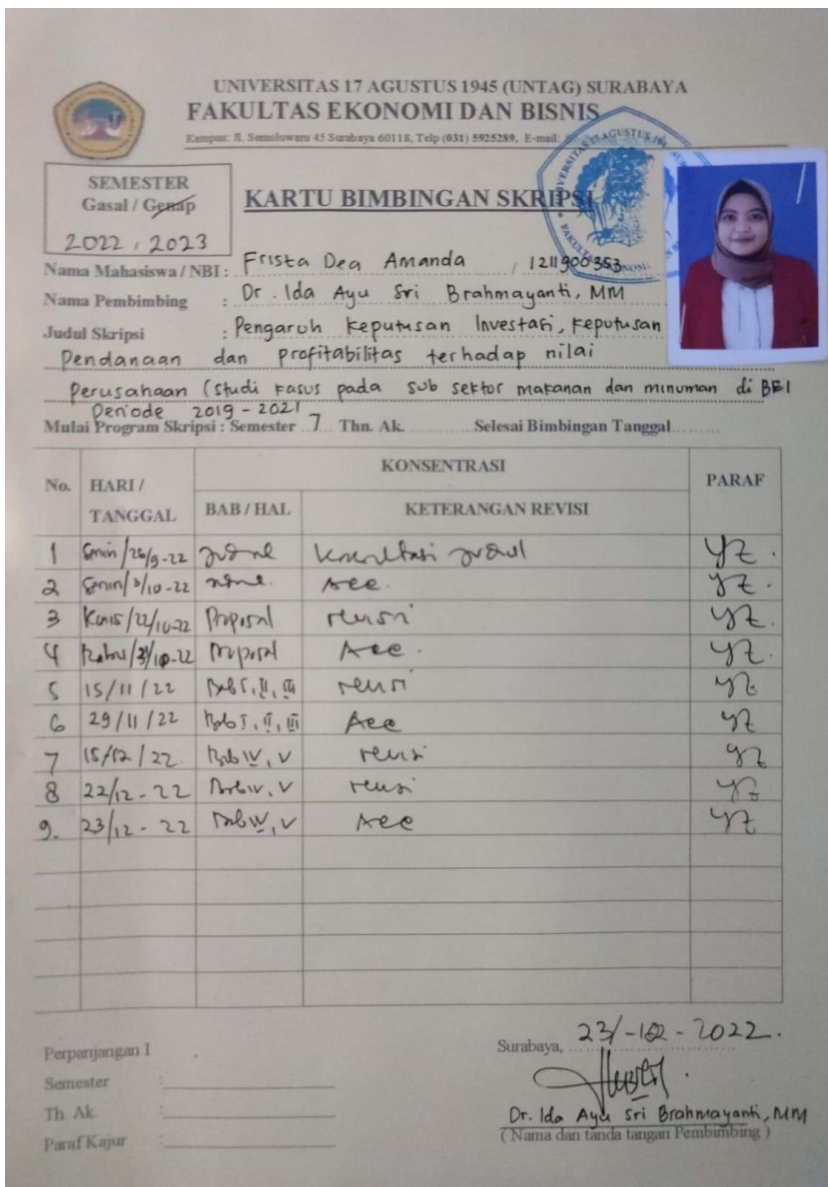 UNIVERSITAS 17 AGUSTUS 1945 (UNTAG) SURABAYA
FAKULTAS EKONOMI DAN BISNIS
Kampus: Jl. Semolowaru 45 Surabaya 60118, Telp (031) 5925289, E-mail:
SEMESTER
Gasal / Genap
2022 / 2023
KARTU BIMBINGAN SKRIPSI
Nama Mahasiswa / NBI : Frista Dea Amanda / 1211900353
Nama Pembimbing : Dr. Ida Ayu Sri Brahmayanti, MM
Judul Skripsi : Pengaruh Keputusan Investasi, Keputusan
Pendanaan dan profitabilitas terhadap nilai
Perusahaan (studi kasus pada sub sektor makanan dan minuman di BEI
Periode 2019 - 2021
Mulai Program Skripsi : Semester 7 Thn. Ak. Selesai Bimbingan Tanggal
No. HARI / TANGGAL KONSENTRASI PARAF
BAB / HAL KETERANGAN REVISI
1 Senin /26/9-22 judul konsultasi judul
2 Senin/3/10-22 Acc.
3 Kamis /22/10-22 Proposal revisi
4 Rabu /31/10-22 Proposal Acc.
5 15/11/22 Bab I, II, III revisi
6 29/11/22 Bab I, II, III Acc
7 15/12/22 Bab IV, V revisi
8 22/12-22 Bab IV, V revisi
9. 23/12-22 Bab IV, V Acc
Perpanjangan I
Semester :
Th. Ak. :
Paraf Kajur :
Surabaya, 23/-12-2022.
Dr. Ida Ayu Sri Brahmayanti, MM
( Nama dan tanda tangan Pembimbing )